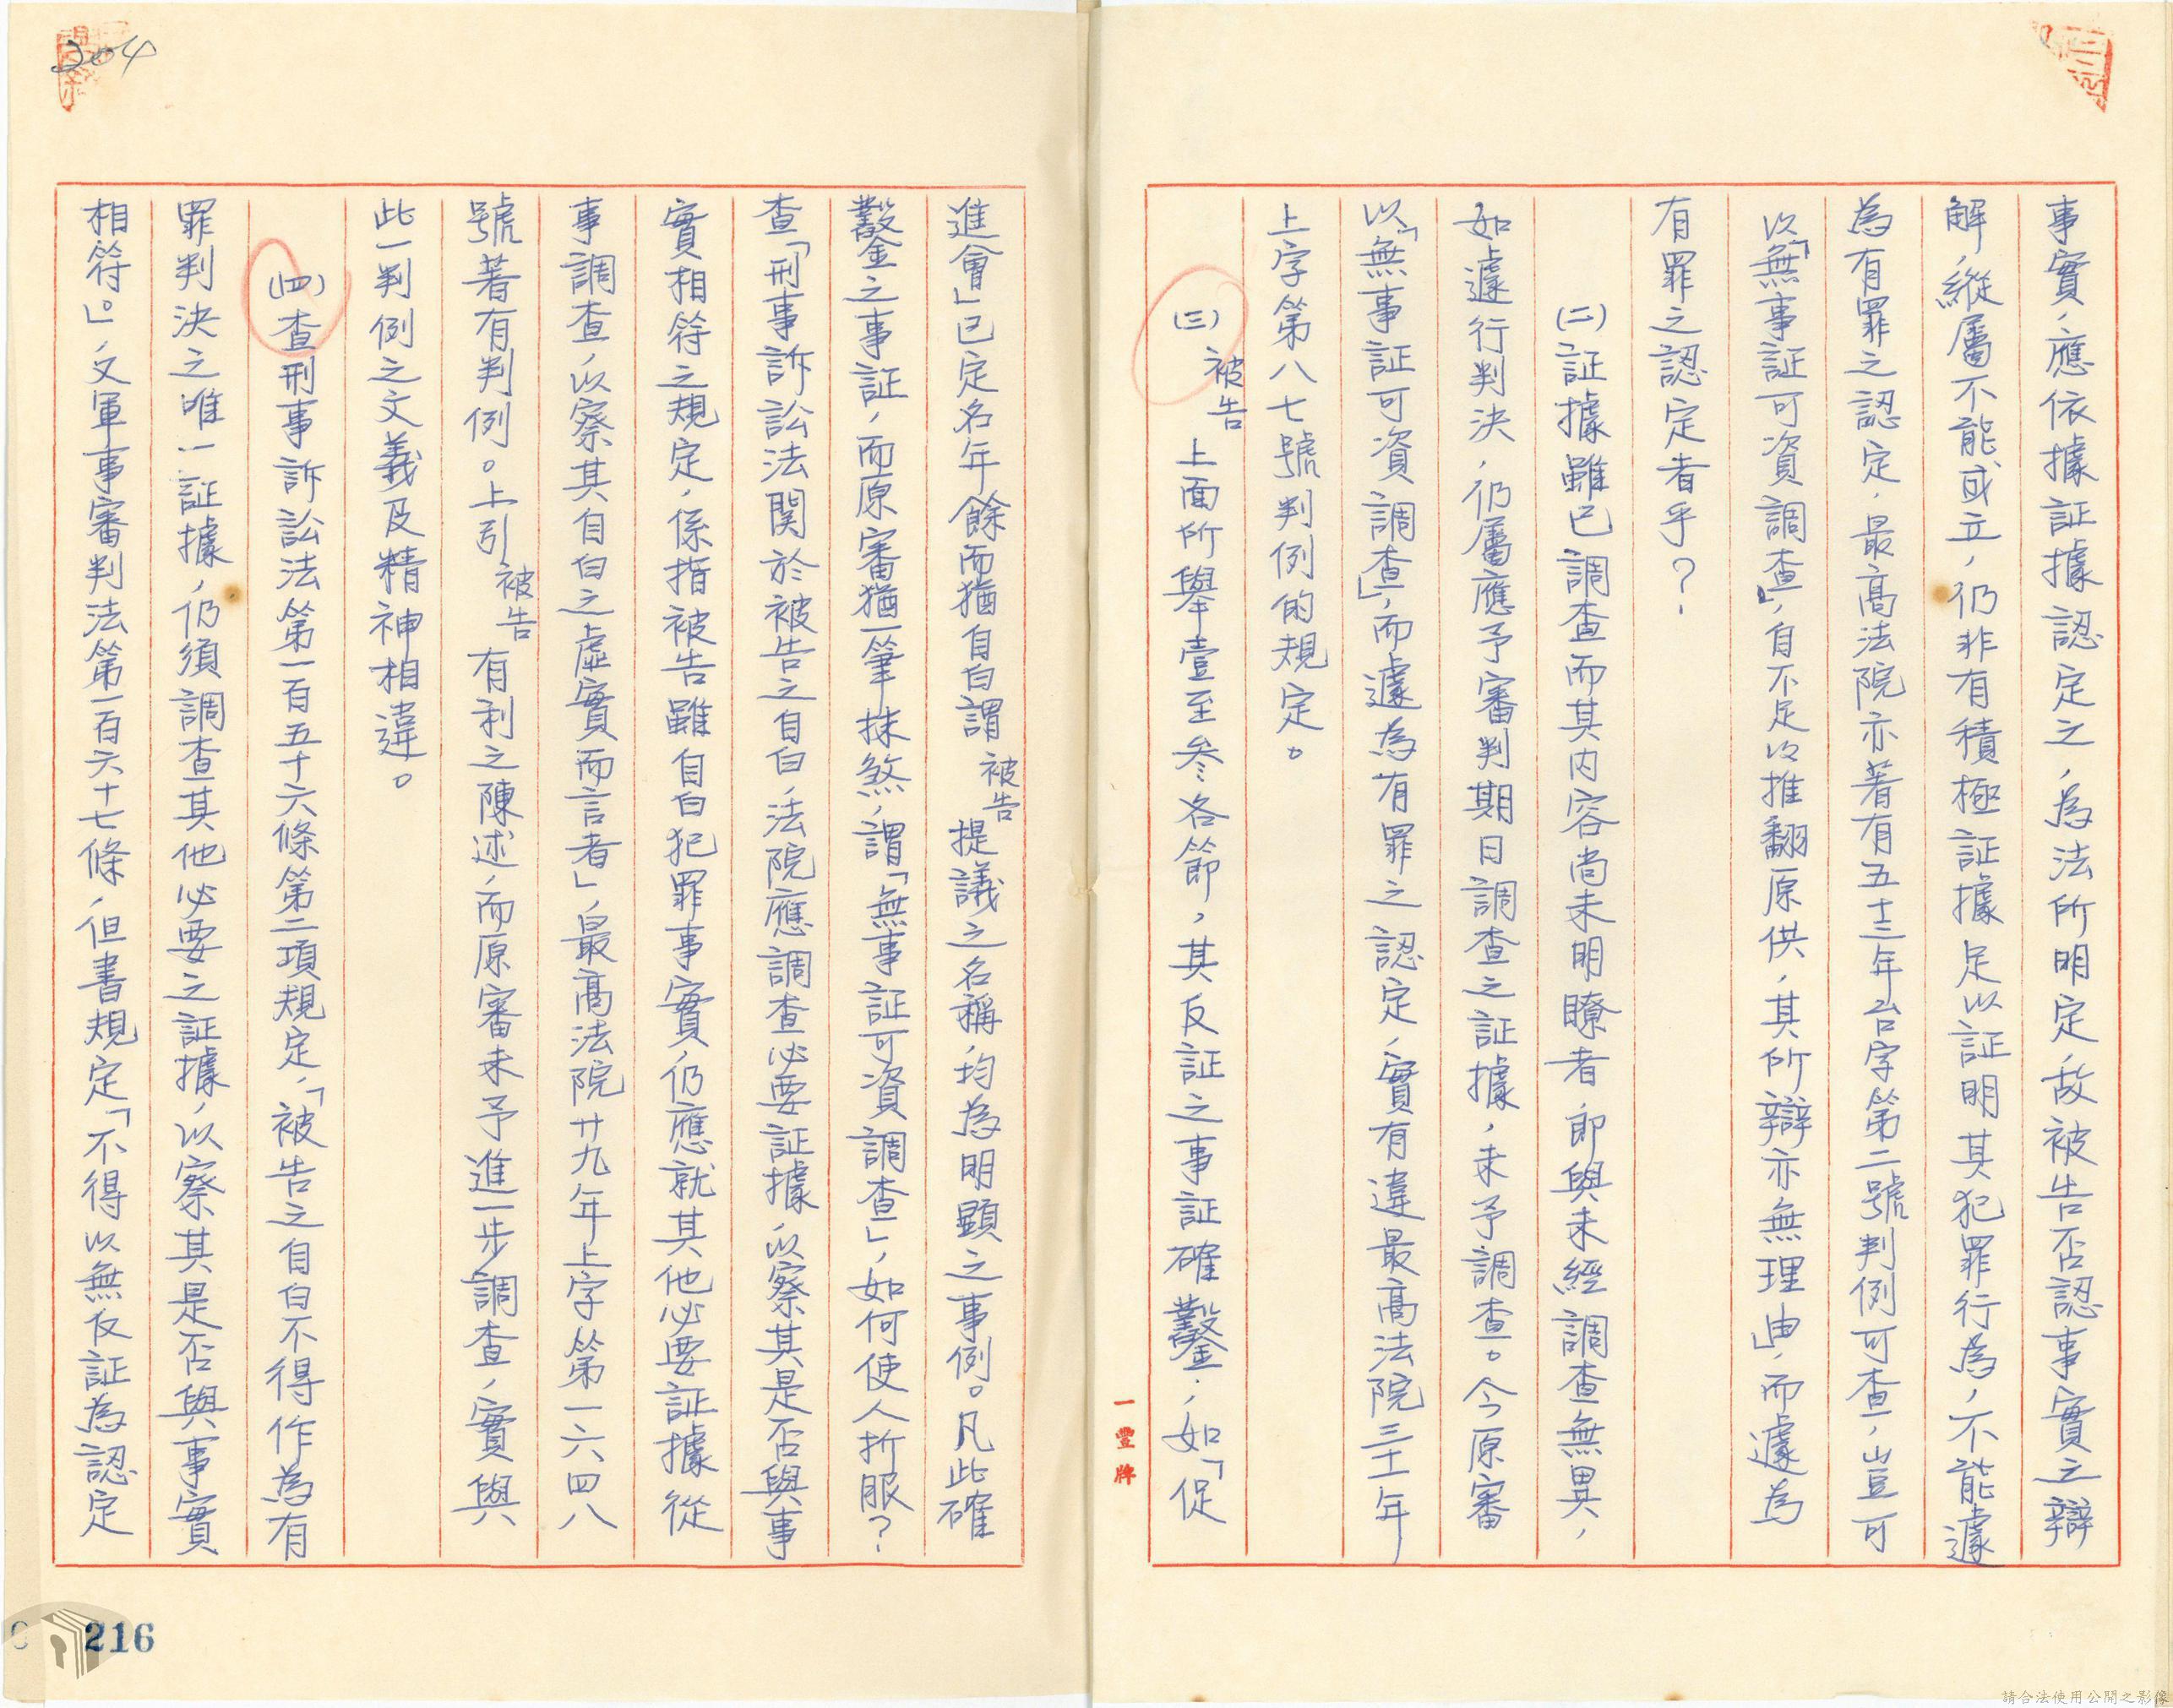 事實，應依據証據認定之，為法所明定，故被告否認事實之辯
解，縱屬不能成立，仍非有積極証據足以証明其犯罪行為，不能遽
為有罪之認定，最高法院亦著有五十三年台字第二號判例可查，豈可
以「無事証可資調查」，自不足以推翻原供，其所辯亦無理由」，而遽為
有罪之認定者乎？
(二)証據雖已調查而其內容尚未明瞭者，即與未經調查無異，
如遽行判決，仍屬應予審判期日調查之証據，未予調查。今原審
以「無事証可資調查」，而遽為有罪之認定，實有違最高法院三十一年
上字第八七號判例的規定。
(三)被告上面所舉壹至參各節，其反証之事証確鑿，如「促
進會」已定名年餘而猶自白謂被告提議之名稱，均為明顯之事例。凡此確
鑿之事証，而原審猶一筆抹煞，謂「無事証可資調查」，如何使人折服？
查「刑事訴訟法関於被告之自白，法院應調查必要証據，以察其是否與事
實相符之規定，係指被告雖自白犯罪事實，仍應就其他必要証據從
事調查，以察其自白之虛實而言者」，最高法院廿九年上字第一六四八
號著有判例。上引被告有利之陳述，而原審未予進一步調查，實與
此一判例之文義及精神相違。
(四)查刑事訴訟法第一百五十六條第二項規定，「被告之自白不得作為有
罪判決之唯一証據，仍須調查其他必要之証據，以察其是否與事實
相符。」，又軍事審判法第一百六十七條，但書規定「不得以無反証為認定
一豐牌
204
216
請合法使用公開之影像